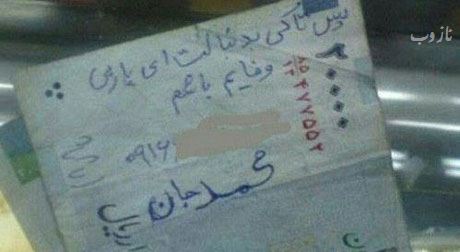 نازوب
پس تا کی بدنبالت ای یار بی
وفایم باشم
۲۰۰۰۰
۸۵
۱۲
۴۷۷۵۵۲
۰۹۱۶
محمد جان